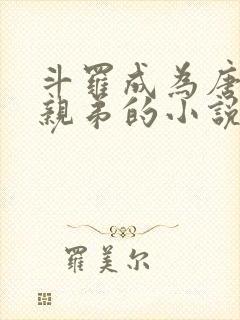 斗羅成為唐
親弟的小說
羅美尔